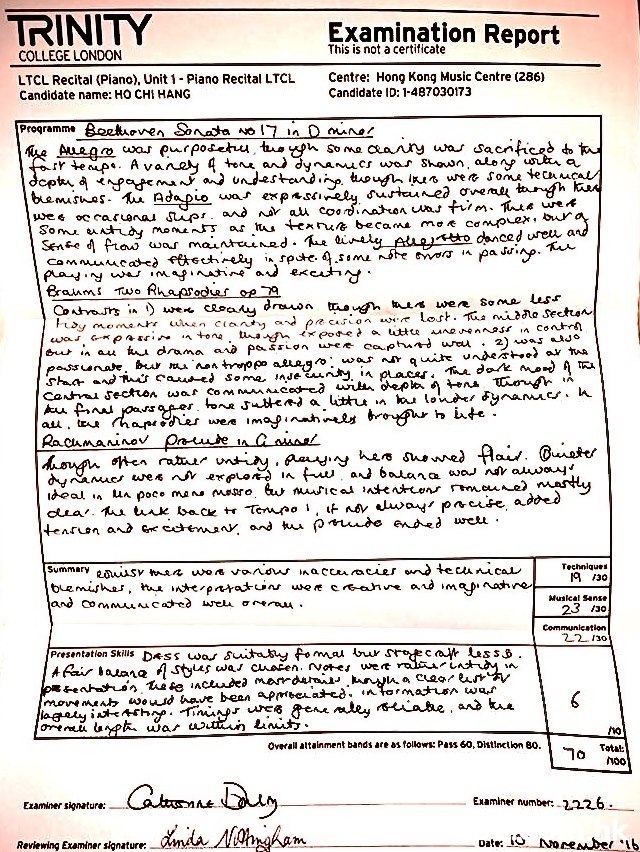 TRINITY
COLLEGE LONDON
Examination Report
This is not a certificate
LTCL Recital (Piano), Unit 1 - Piano Recital LTCL
Centre: Hong Kong Music Centre (286)
Candidate name: HO CHI HANG
Candidate ID: 1-487030173
Programme Beethoven Sonata no 17 in D minor
The Allegro was purposeful, though some clarity was sacrificed to the
fast tempo. A variety of tone and dynamics was shown, along with a
depth of engagement and understanding, though there were some technical
blemishes. The Adagio was expressively sustained overall though there
were occasional slips, and not all coordination was firm. There were
some untidy moments as the texture became more complex, but a
sense of flow was maintained. The lively Allegretto danced well and
communicated effectively in spite of some note errors in passing. The
playing was imaginative and exciting.
Brahms Two Rhapsodies op 79
Contrasts in 1) were clearly drawn though there were some less
tidy moments when clarity and precision were lost. The middle section
was expressive in tone, though exposed a little unevenness in control
but in all the drama and passion were captured well. 2) was also
passionate, but the non troppo allegro was not quite understood at the
start and this caused some insecurity in places. The dark mood of the
central section was communicated with depth of tone though in
the final passages, tone suffered a little in the louder dynamics. In
all, the rhapsodies were imaginatively brought to life.
Rachmaninov Prelude in G minor
Though often rather untidy, playing here showed flair. Quieter
dynamics were not explored in full, and balance was not always
ideal in the poco meno mosso, but musical intentions remained mostly
clear. The link back to Tempo 1, if not always precise, added
tension and excitement, and the prelude ended well.
Summary Whilst there were various inaccuracies and technical
blemishes, the interpretations were creative and imaginative
and communicated well overall.
Techniques
19 /30
Musical Sense
23 /30
Communication
22 /30
Presentation Skills Dress was suitably formal but stagecraft less so.
A fair balance of styles was chosen. Notes were rather untidy in
presentation. These included most details, though a clear list of
movements would have been appreciated. Information was
largely interesting. Timings were generally reliable, and the
overall length was within limits.
6
/10
Overall attainment bands are as follows: Pass 60, Distinction 80.
70 Total:
/100
Examiner signature: Catherine Daly
Examiner number: 2226.
Reviewing Examiner signature: Linda Nottingham
Date: 10 November '16